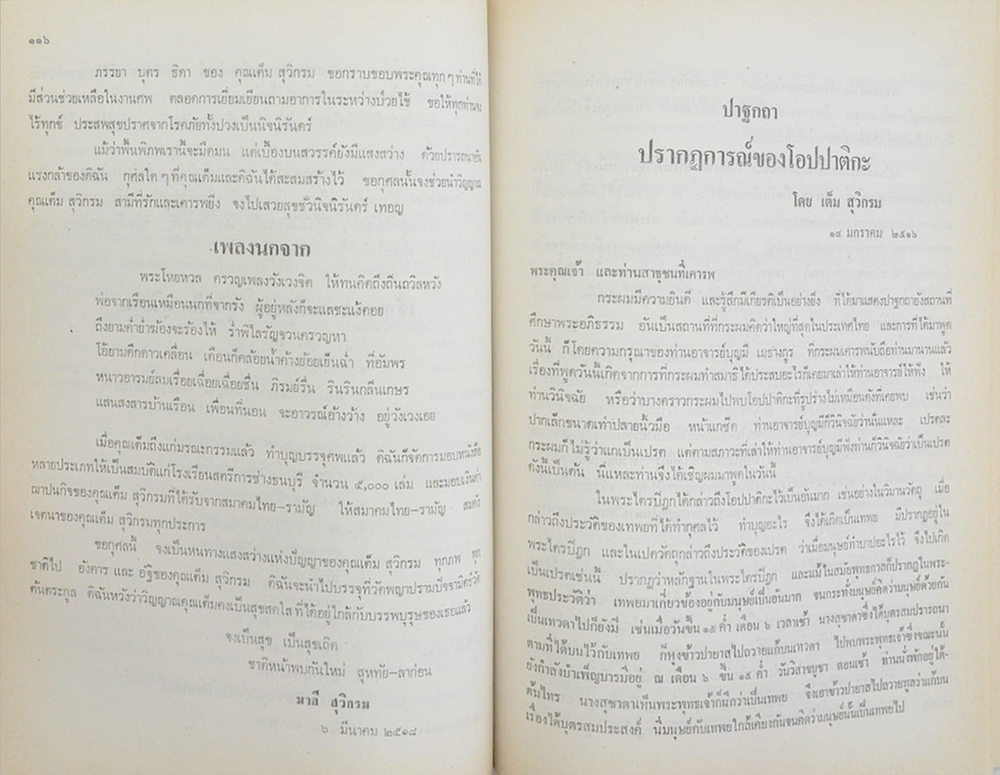 ๑๑๖
ภรรยา บุตร ธิดา ของ คุณเต็ม สุวิกรม ขอกราบขอบพระคุณทุกๆท่านที่ได้
มีส่วนช่วยเหลือในงานศพ ตลอดการเยี่ยมเยียนถามอาการในระหว่างป่วยไข้ ขอให้ทุกท่าน
ไร้ทุกข์ ประสพสุขปราศจากโรคภัยทั้งปวงเป็นนิจนิรันดร์
แม้ว่าพื้นพิภพเรานี้จะมืดมน แต่เบื้องบนสวรรค์ยังมีแสงสว่าง ด้วยปรารถนาอัน
แรงกล้าของดิฉัน กุศลใดๆที่คุณเต็มและดิฉันได้สะสมสร้างไว้ ขอกุศลนั้นจงช่วยนำวิญญาณ
คุณเต็ม สุวิกรม สามีที่รักและเคารพยิ่ง จงไปเสวยสุขชั่วนิจนิรันดร์ เทอญ
เพลงนกจาก
พระโหยหวล ครวญเพลงวังเวงจิต ให้ทนคิดถึงถิ่นถวิลหวัง
พ่อจากเรือนเหมือนนกที่จากรัง ผู้อยู่หลังก็จะแลชะแง้คอย
ถึงยามค่ำย่ำฆ้องจะร้องไห้ ร่ำพิไลรัญจวนครวญหา
โอ้ยามดึกดาวเคลื่อน เดือนก็คล้อยน้ำค้างย้อยเย็นฉ่ำ ที่อัมพร
หนาวอารมย์ลมเรื่อยเฉื่อยเฉื่อยชื่น ภิรมย์รื่น รินรินกลิ่นเกษร
แสนสงสารบ้านเรือน เพื่อนที่นอน จะอาวรณ์อ้างว้าง อยู่วังเวงเอย
เมื่อคุณเต็มถึงแก่มรณะกรรมแล้ว ทำบุญบรรจุศพแล้ว ดิฉันก็จัดการมอบหนังสือ
หลายประเภทให้เป็นสมบัติแก่โรงเรียนสตรีการช่างธนบุรี จำนวน ๕,๐๐๐ เล่ม และมอบเงินค่า
ฌาปนกิจของคุณเต็ม สุวิกรมที่ได้รับจากสมาคมไทย-รามัญ ให้สมาคมไทย-รามัญ สมดัง
เจตนาของคุณเต็ม สุวิกรมทุกประการ
ขอกุศลนี้ จงเป็นหนทางแสงสว่างแห่งปัญญาของคุณเต็ม สุวิกรม ทุกภพ ทุก
ชาติไป อังคาร และ อัฐิของคุณเต็ม สุวิกรม ดิฉันจะนำไปบรรจุที่วัดพญาปราบปัจจามิตร์วัด
ต้นตระกูล ดิฉันหวังว่าวิญญาณคุณเต็มคงเป็นสุขสดใส ที่ได้อยู่ใกล้กับบรรพบุรุษของเธอแล้ว
จงเป็นสุข เป็นสุขเถิด
ชาติหน้าพบกันใหม่ สุหทัย-ลาก่อน
มาลี สุวิกรม
๖ มีนาคม ๒๕๑๘
ปาฐกถา
ปรากฏการณ์ของโอปปาติกะ
โดย เต็ม สุวิกรม
๑๔ มกราคม ๒๕๑๖
พระคุณเจ้า และท่านสาธุชนที่เคารพ
กระผมมีความยินดี และรู้สึกมีเกียรติเป็นอย่างยิ่ง ที่ได้มาแสดงปาฐกถายังสถานที่
ศึกษาพระอภิธรรม อันเป็นสถานที่ที่กระผมคิดว่าใหญ่ที่สุดในประเทศไทย และการที่ได้มาพูด
วันนี้ ก็โดยความกรุณาของท่านอาจารย์บุญมี เมธางกูร ที่กระผมเคารพนับถือท่านมานานแล้ว
เรื่องที่พูดวันนี้เกิดจากการที่กระผมทำสมาธิได้ประสบอะไรก็เคยมาเล่าให้ท่านอาจารย์ให้ฟัง ให้
ท่านวินิจฉัย หรือว่าบางคราวกระผมไปพบโอปปาติกะที่รูปร่างไม่เหมือนดังที่เคยพบ เช่นว่า
ปากเล็กขนาดเท่าปลายนิ้วมือ หน้าแกซีด ท่านอาจารย์บุญมีก็วินิจฉัยว่านั่นแหละ เปรตละ
กระผมก็ไม่รู้ว่าแกเป็นเปรต แต่ตามสภาวะที่เล่าให้ท่านอาจารย์บุญมีฟังท่านก็วินิจฉัยว่าเป็นเปรต
ดังนี้เป็นต้น นี่แหละท่านจึงได้เชิญผมมาพูดในวันนี้
ในพระไตรปิฎกได้กล่าวถึงโอปปาติกะไว้เป็นอันมาก เช่นอย่างในวิมานวัตถุ เมื่อ
กล่าวถึงประวัติของเทพยที่ได้ทำกุศลไว้ ทำบุญอะไร จึงได้เกิดเป็นเทพย มีปรากฏอยู่ใน
พระไตรปิฎก และในเปตวัตถุกล่าวถึงประวัติของเปรต ว่าเมื่อมนุษย์ทำบาปอะไรไว้ จึงไปเกิด
เป็นเปรตเช่นนี้ ปรากฏว่าหลักฐานในพระไตรปิฎก และแม้ในสมัยพุทธกาลก็ปรากฏในพระ-
พุทธประวัติว่า เทพยมาเกี่ยวข้องอยู่กับมนุษย์เป็นอันมาก จนกระทั่งมนุษย์คิดว่ามนุษย์ด้วยกัน
เป็นเทวดาไปก็ยังมี เช่นเมื่อวันขึ้น ๑๕ ค่ำ เดือน ๖ เวลาเช้า นางสุชาดาซึ่งได้บุตรสมปรารถนา
ตามที่ได้บนไว้กับเทพย ก็หุงข้าวปายาสไปถวายแก้บนเทวดา ไปพบพระพุทธเจ้าซึ่งขณะนั้น
ยังกำลังบำเพ็ญบารมีอยู่ ณ เดือน ๖ ขึ้น ๑๕ ค่ำ วันวิสาขบูชา ตอนเช้า ท่านนั่งพักอยู่ใต้-
ต้นไทร นางสุชาดาเห็นพระพุทธเจ้าก็นึกว่าเป็นเทพย จึงเอาข้าวปายาสไปถวายทูลว่าแก้บน
เรื่องได้บุตรสมประสงค์ นี่มนุษย์กับเทพยใกล้เคียงกันจนคิดว่ามนุษย์นั้นเป็นเทพยไป